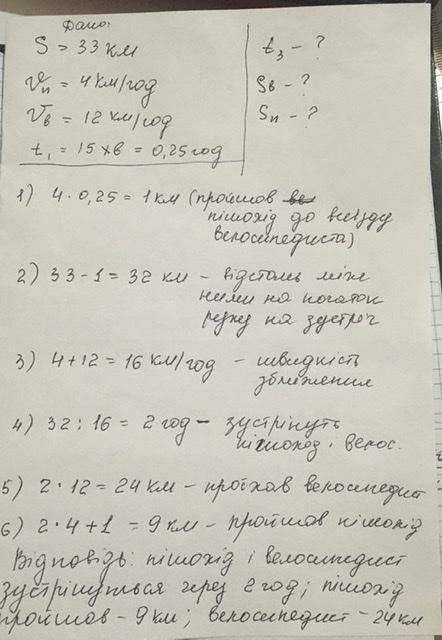 Дано:
S = 33 км
Vп = 4 км/год
Vв = 12 км/год
t₁ = 15 хв = 0,25 год
t₃ - ?
Sв - ?
Sп - ?
1) 4 · 0,25 = 1 км (пройшов
пішохід до виїзду
велосипедиста)
2) 33 - 1 = 32 км - відстань між
ними на початок
руху на зустріч
3) 4 + 12 = 16 км/год - швидкість
зближення
4) 32 : 16 = 2 год - зустрінуть
пішоход і велос.
5) 2 · 12 = 24 км - проїхав велосипедист
6) 2 · 4 + 1 = 9 км - пройшов пішохід
Відповідь: пішохід і велосипедист
зустрінуться через 2 год; пішохід
пройшов - 9 км; велосипедист - 24 км